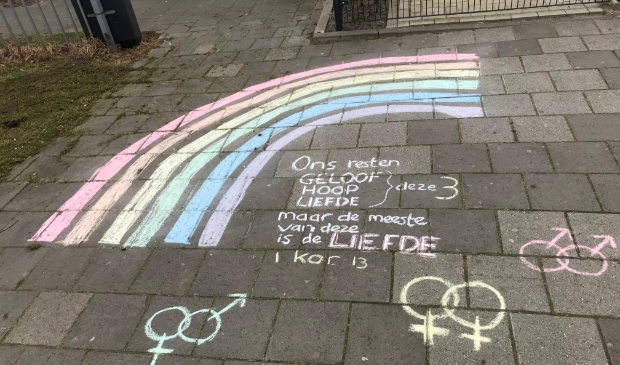 Ons resten
GELOOF
HOOP deze 3
LIEFDE
maar de meeste
van deze
is de LIEFDE
1 Kor 13